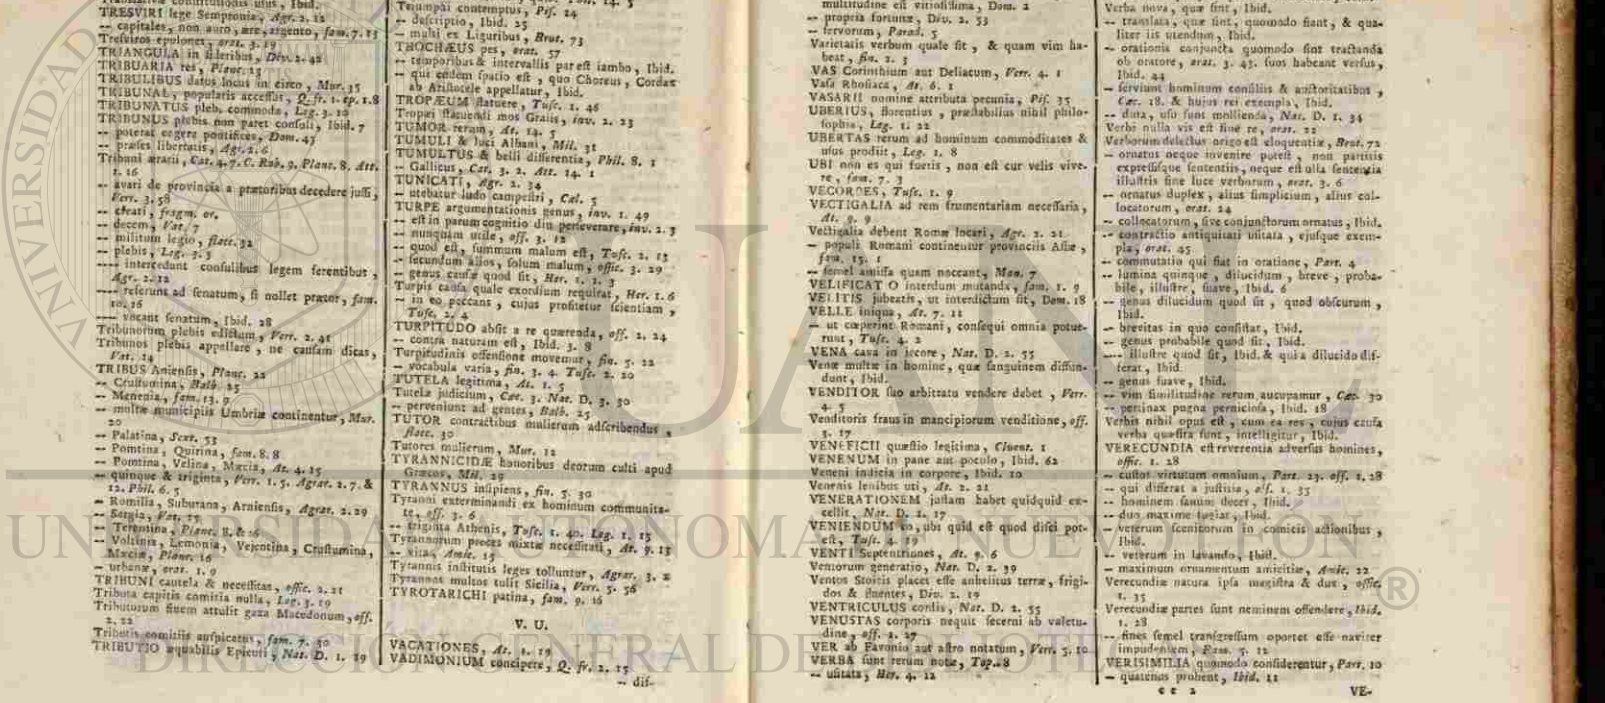 TRESVIRI lege Sempronia, Agr. 2. 12
-- capitales, non auro, ære, argento, fam. 7. 13
Tresviros epulones, orat. 3. 19
TRIANGULA in sideribus, Div. 2. 42
TRIBUARIA res, Planc. 15
TRIBULIBUS datus locus in circo, Mur. 35
TRIBUNAL, popularis accessus, Q. fr. 1. ep. 1. 8
TRIBUNATUS pleb. commoda, Leg. 3. 10
TRIBUNUS plebis non paret consuli, Ibid. 7
-- poterat cogere pontifices, Dom. 45
-- præses libertatis, Agr. 2. 6
Tribuni ærarii, Cat. 4. 7. C. Rab. 9. Planc. 8. Att.
1. 16
-- avari de provincia a prætoribus decedere jussi,
Verr. 3. 58
-- creati, fragm. or.
-- decem, Vat. 7
-- militum legio, flacc. 32
-- plebis, Leg. 3. 3
---- intercedunt consulibus legem ferentibus,
Agr. 2. 12
---- referunt ad senatum, si nollet prætor, fam.
10. 16
---- vocant senatum, Ibid. 28
Tribunorum plebis edictum, Verr. 2. 41
Tribunos plebis appellare, ne causam dicas,
Vat. 14
TRIBUS Aniensis, Planc. 22
-- Crustumina, Balb. 25
-- Menenia, fam. 13. 9
-- multæ municipiis Umbriæ continentur, Mur.
20
-- Palatina, Sext. 53
-- Pomtina, Quirina, fam. 8. 8
-- Pomtina, Velina, Mæcia, At. 4. 15
-- quinque & triginta, Verr. 1. 5. Agrar. 2. 7. &
12. Phil. 6. 5
-- Romilia, Suburana, Arniensis, Agrar. 2. 29
-- Sergia, Vat. 15
-- Teretina, Planc. 8. & 16
-- Voltinia, Lemonia, Vejentina, Crustumina,
Mæcia, Planc. 16
-- urbanæ, orat. 1. 9
TRIBUNI cautela & necessitas, offic. 2. 21
Tributa capitis comitia nulla, Leg. 3. 19
Tributorum finem attulit gaza Macedonum, off.
2. 22
Tributis comitiis auspicatus, fam. 7. 30
TRIBUTIO æquabilis Epicuri, Nat. D. 1. 19
Triumphi contemptus, Pis. 24
-- descriptio, Ibid. 25
-- multi ex Liguribus, Brut. 73
THOCHÆUS pes, orat. 57
-- temporibus & intervallis par est iambo, Ibid.
-- qui eodem spatio est, quo Choreus, Cordax
ab Aristotele appellatur, Ibid.
TROPÆUM statuere, Tusc. 1. 46
Tropæi statuendi mos Graiis, inv. 2. 23
TUMOR rerum, At. 14. 5
TUMULI & luci Albani, Mil. 31
TUMULTUS & belli differentia, Phil. 8. 1
-- Gallicus, Cat. 3. 2. Att. 14. 1
TUNICATI, Agr. 2. 34
-- utebatur ludo campestri, Cæl. 5
TURPE argumentationis genus, inv. 1. 49
-- est in parum cognitio diu perseverare, inv. 2. 3
-- nunquam utile, off. 3. 12
-- quod est, summum malum est, Tusc. 2. 13
-- secundum alios, solum malum, offic. 3. 29
-- genus causæ quod sit, Her. 1. 1. 3
Turpis causa quale exordium requirat, Her. 1. 6
-- in eo peccans, cujus profitetur scientiam,
Tusc. 2. 4
TURPITUDO absit a re quærenda, off. 2. 24
-- contra naturam est, Ibid. 3. 8
Turpitudinis offensione movemur, fin. 5. 22
-- vocabula varia, fin. 3. 4. Tusc. 2. 20
TUTELA legitima, At. 1. 5
Tutelæ judicium, Cæc. 3. Nat. D. 3. 30
-- perveniunt ad gentes, Balb. 25
TUTOR contractibus mulierum adscribendus,
flacc. 30
Tutores mulierum, Mur. 12
TYRANNICIDÆ honoribus deorum culti apud
Græcos, Mil. 29
TYRANNUS insipiens, fin. 5. 30
Tyranni exterminandi ex hominum communita-
te, off. 3. 6
-- triginta Athenis, Tusc. 1. 40. Leg. 1. 15
Tyrannorum preces mixtæ necessitati, At. 9. 13
-- vita, Amic. 15
Tyrannis institutis leges tolluntur, Agrar. 3. 2
Tyrannos multos tulit Sicilia, Verr. 5. 56
TYROTARICHI patina, fam. 9. 16
V. U.
VACATIONES, At. 1. 19
VADIMONIUM concipere, Q. fr. 2. 15
-- dif-
multitudine est vitiosissima, Dom. 2
-- propria fortunæ, Div. 2. 53
-- servorum, Parad. 5
Varietatis verbum quale sit, & quam vim ha-
beat, fin. 2. 3
VAS Corinthium aut Deliacum, Verr. 4. 1
Vasa Rhosiaca, At. 6. 1
VASARII nomine attributa pecunia, Pis. 35
UBERIUS, florentius, præstabilius nihil philo-
sophia, Leg. 1. 22
UBERTAS rerum ad hominum commoditates &
usus prodiit, Leg. 1. 8
UBI non es qui fueris, non est cur velis vive-
re, fam. 7. 3
VECORDES, Tusc. 1. 9
VECTIGALIA ad rem frumentariam necessaria,
At. 9. 9
Vectigalia debent Romæ locari, Agr. 2. 21
-- populi Romani continentur provinciis Asiæ,
fam. 15. 1
-- semel amissa quam noceant, Man. 7
VELIFICATIO interdum mutanda, fam. 1. 9
VELITIS jubeatis, ut interdictum sit, Dom. 18
VELLE iniqua, At. 7. 11
-- ut cœperint Romani, consequi omnia potue-
runt, Tusc. 4. 2
VENA cava in jecore, Nat. D. 2. 55
Venæ multæ in homine, quæ sanguinem diffun-
dunt, Ibid.
VENDITOR suo arbitratu vendere debet, Verr.
4. 5
Venditoris fraus in mancipiorum venditione, off.
3. 17
VENEFICII quæstio legitima, Cluent. 1
VENENUM in pane aut poculo, Ibid. 62
Veneni indicia in corpore, Ibid. 10
Venenis lenibus uti, At. 2. 21
VENERATIONEM justam habet quidquid ex-
cellit, Nat. D. 1. 17
VENIENDUM eo, ubi quid est quod disci pot-
est, Tusc. 4. 19
VENTI Septentriones, At. 9. 6
Ventorum generatio, Nat. D. 2. 39
Ventos Stoicis placet esse anhelitus terræ, frigi-
dos & fluentes, Div. 2. 19
VENTRICULUS cordis, Nat. D. 2. 55
VENUSTAS corporis nequit secerni ab valetu-
dine, off. 1. 27
VER ab Favonio aut astro notatum, Verr. 5. 10
VERBA sunt rerum notæ, Top. 8
-- usitata, Her. 4. 12
Verba nova, quæ sint, Ibid.
-- translata, quæ sint, quomodo fiant, & qua-
liter iis utendum, Ibid.
-- orationis conjuncta quomodo sint tractanda
ob oratore, orat. 3. 43. suos habeant versus,
Ibid. 44
-- serviunt hominum consiliis & auctoritatibus,
Cæc. 18. & hujus rei exempla, Ibid.
-- dura, usu sunt mollienda, Nat. D. 1. 34
Verbi nulla vis est sine re, orat. 22
Verborum delectus origo est eloquentiæ, Brut. 72
-- ornatus neque invenire potest, non partitis
expressisque sententiis, neque est ulla sententia
illustris sine luce verborum, orat. 3. 6
-- ornatus duplex, alius simplicium, alius col-
locatorum, orat. 24
-- collocatorum, sive conjunctorum ornatus, Ibid.
-- contractio antiquitati usitata, ejusque exem-
pla, orat. 45
-- commutatio qui fiat in oratione, Part. 4
-- lumina quinque, dilucidum, breve, proba-
bile, illustre, suave, Ibid. 6
-- genus dilucidum quod sit, quod obscurum,
Ibid.
-- brevitas in quo consistat, Ibid.
-- genus probabile quod sit, Ibid.
---- illustre quod sit, Ibid. & qui a dilucido dif-
ferat, Ibid.
-- genus suave, Ibid.
-- vim similitudine rerum aucupamur, Cæc. 30
-- pertinax pugna perniciosa, Ibid. 18
Verbis nihil opus est, cum ea res, cujus causa
verba quæsita sunt, intelligitur, Ibid.
VERECUNDIA est reverentia adversus homines,
offic. 1. 28
-- custos virtutum omnium, Part. 23. off. 1. 28
-- qui differat a justitia, off. 1. 35
-- hominem sanum decet, Ibid.
-- duo maxime fugiat, Ibid.
-- veterum scenicorum in comicis actionibus,
Ibid.
-- veterum in lavando, Ibid.
-- maximum ornamentum amicitiæ, Amic. 22
Verecundiæ natura ipsa magistra & dux, offic.
1. 35
Verecundiæ partes sunt neminem offendere, Ibid.
1. 28
-- fines semel transgressum oportet esse naviter
impudentem, Fam. 5. 12
VERISIMILIA quomodo considerentur, Part. 10
-- quatenus probent, Ibid. 11
e e 2
VE-
UANL
UNIVERSIDAD AUTÓNOMA DE NUEVO LEÓN
®
DIRECCIÓN GENERAL DE BIBLIOTECAS